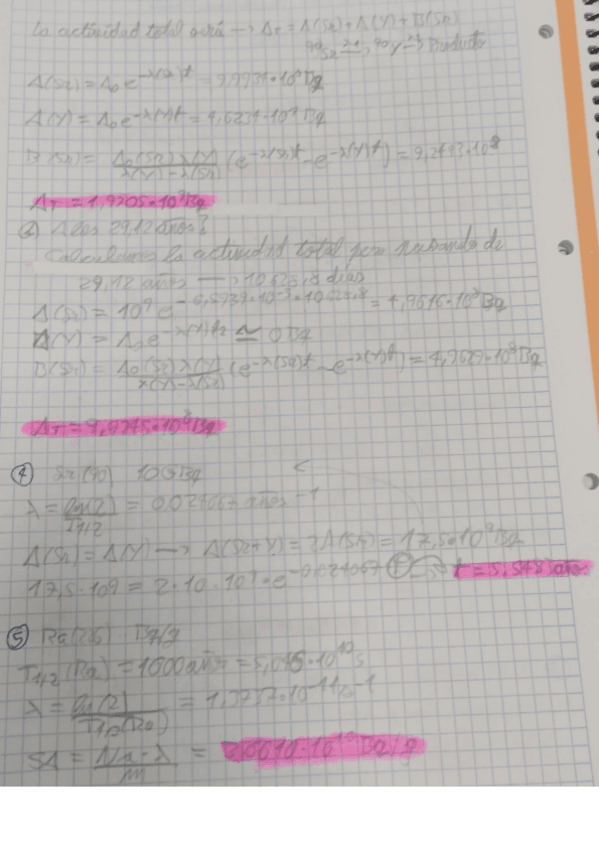 La actividad total será → A_T = A(Sr) + A(Y) + B(Sr)
⁹⁰Sr → ⁹⁰Y → Producto
A(Sr) = A₀ e^-λ(Sr)t = 9,9934·10⁸ Bq
A(Y) = A₀ e^-λ(Y)t =
B(Sr) = A₀(Sr) λ(Y) / λ(Y)-λ(Sr) (e^-λ(Sr)t - e^-λ(Y)t) =
A_T = 1,9205·10⁹ Bq
A los 29,12 años?
Calculamos la actividad total pero pasando de
29,12 años → 10628,8 días
A(Sr) = 10⁹ e = 4,9616·10⁸ Bq
A(Y) = A₀ e^-λ(Y)t₂ ≅ 0 Bq
B(Sr) = A₀(Sr) λ(Y) / λ(Y)-λ(Sr) (e^-λ(Sr)t - e^-λ(Y)t) = 4,9629·10⁸ Bq
A_T = 9,9245·10⁸ Bq
④ Sr(90) 10 GBq
λ = ln(2) / T1/2 = años⁻¹
A(Sr) = A(Y) → A(Sr+Y) = 2A(Sr) = 17,5·10⁹ Bq
17,5·10⁹ = 2·10·10⁹·e t = años
⑤ Ra(226) Bq/g
T1/2 (Ra) = 1600 años = 5,045·10¹⁰ s
λ = ln(2) / T1/2(Ra) = 1,3737·10⁻¹¹ s⁻¹
SA = Na·λ / m = 3,6610·10¹⁰ Bq/g